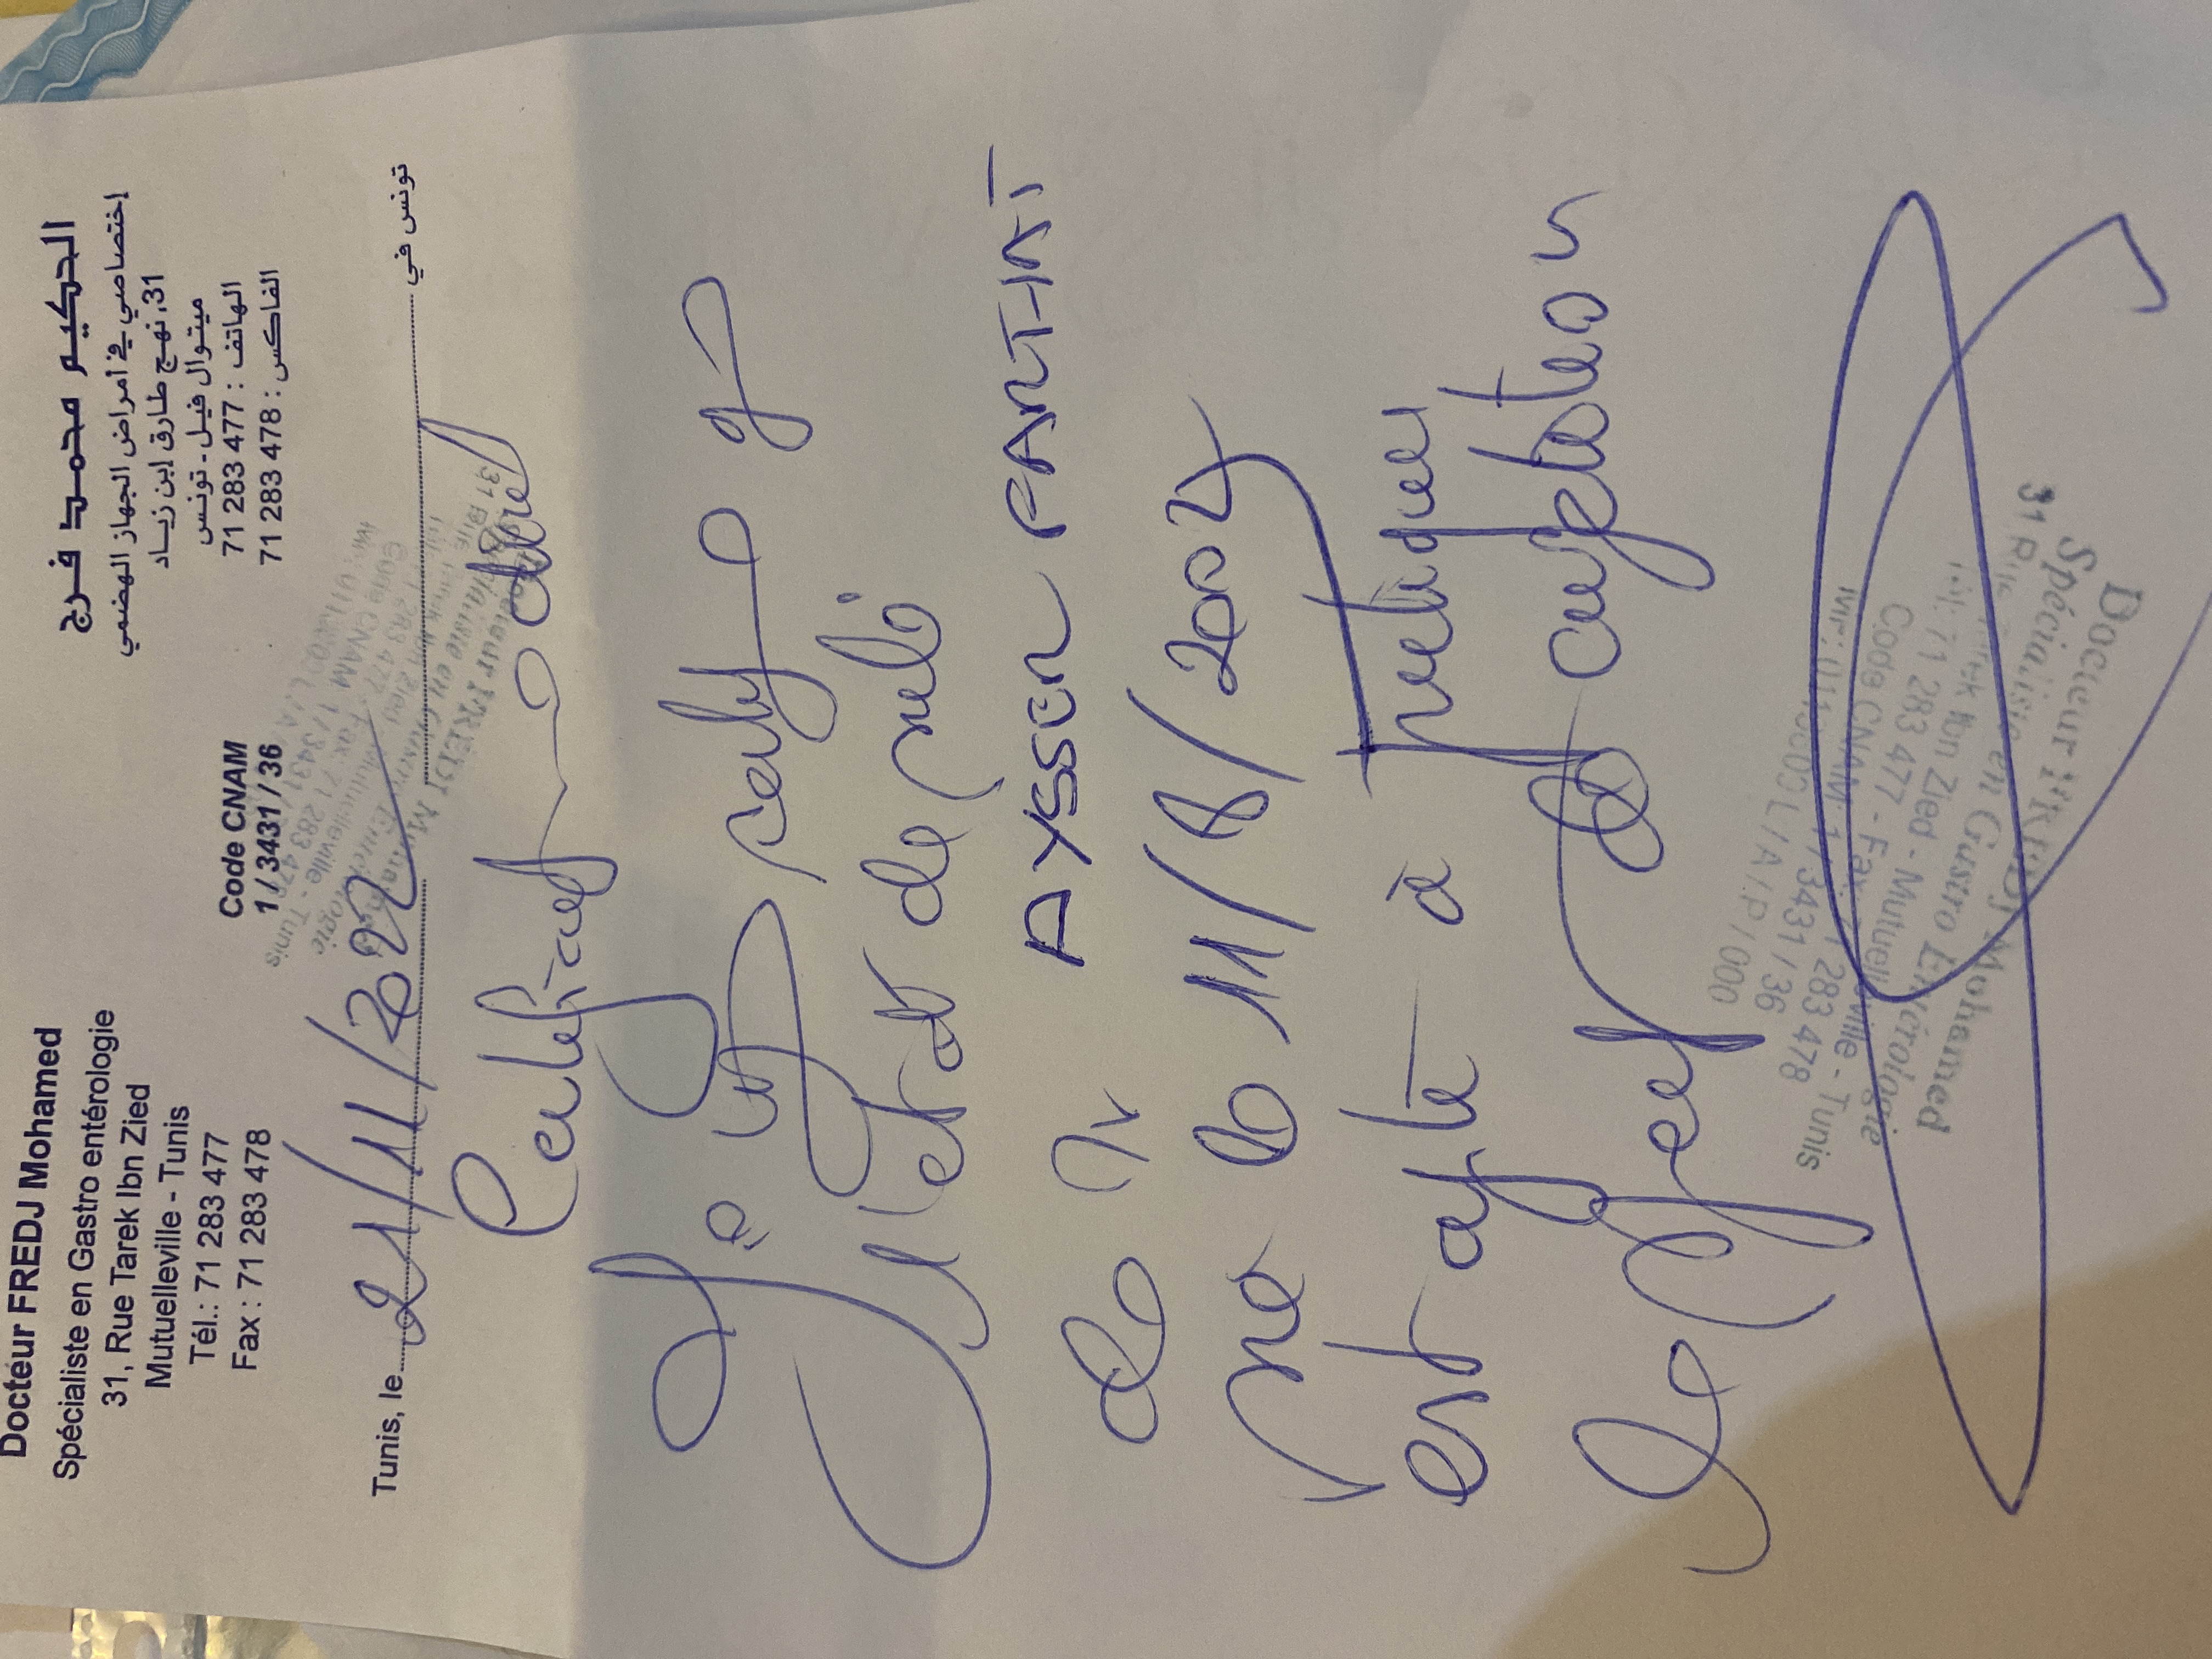 Docteur FREDJ Mohamed
Spécialiste en Gastro entérologie
31, Rue Tarek Ibn Zied
Mutuelleville - Tunis
Tél.: 71 283 477
Fax : 71 283 478
Code CNAM
1 / 3431 / 36
الحكيم محمد فرج
إختصاصي في أمراض الجهاز الهضمي
31, نهج طارق إبن زياد
ميتوال فيل - تونس
الهاتف : 71 283 477
الفاكس : 71 283 478
Tunis, le 21/11/2022 تونس في
Certificat
Je
l'état de
de AYSSER
né le 11/8/2004
est apte à pratiquer
en compétition
Docteur FREDJ Mohamed
Spécialiste en Gastro Entérologie
31 Rue Tarek Ibn Zied - Mutuelleville - Tunis
Tél: 71 283 477 - Fax: 71 283 478
Code CNAM 1 / 3431 / 36